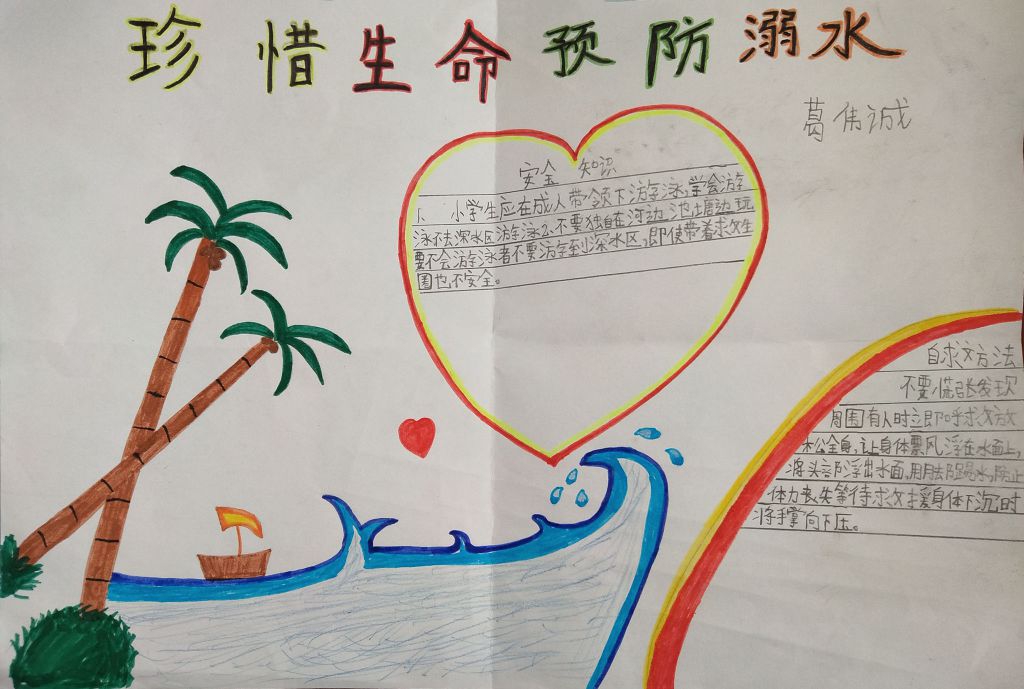 珍惜生命预防溺水
葛伟诚
安全知识
1、小学生应在成人带领下游泳,学会游
泳不去深水区游泳2、不要独自在河边、池塘边玩
要不会游泳者不要游到深水区,即使带着救生
圈也不安全。
自救方法
不要慌张发现
周围有人时立即呼救放
松全身,让身体飘浮在水面上,
将头部浮出水面,用脚踢水,防止
体力丧失等待救援身体下沉时
将手掌向下压。